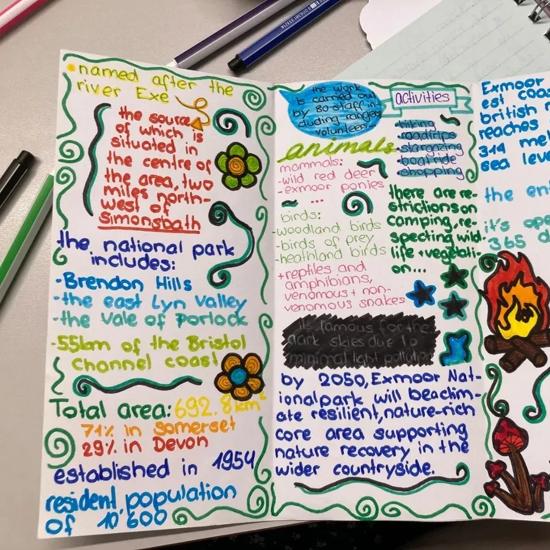 • named after the
river Exe
the source
of which is
situated in
the centre of
the area, two
miles north-
west of
Simonsbath
the national park
includes:
-Brendon Hills
-the east Lyn Valley
-the Vale of Porlock
-55km of the Bristol
channel coast
Total area: 692.8km²
71% in somerset
29% in Devon
established in 1954
resident population
of 10 600
the work
is carried out
by 80 staff in-
cluding rangers
volunteers
animals
mammals:
-wild red deer
-exmoor ponies
birds:
-woodland birds
-birds of prey
-heathland birds
+reptiles and
amphibians,
venomous + non-
venomous snakes
activities
hiking
roadtrips
stargazing
boatride
shopping
there are re-
strictions on
camping, re-
specting wild-
life + vegetati-
on...
is famous for the
dark skies due to
minimal light pollution
by 2050, Exmoor Nat-
ionalpark will be a clim-
ate resilient, nature-rich
core area supporting
nature recovery in the
wider countryside.
Exmoor
est coas
british
reaches
314 me
sea leve
the ent
it's ope
365 d